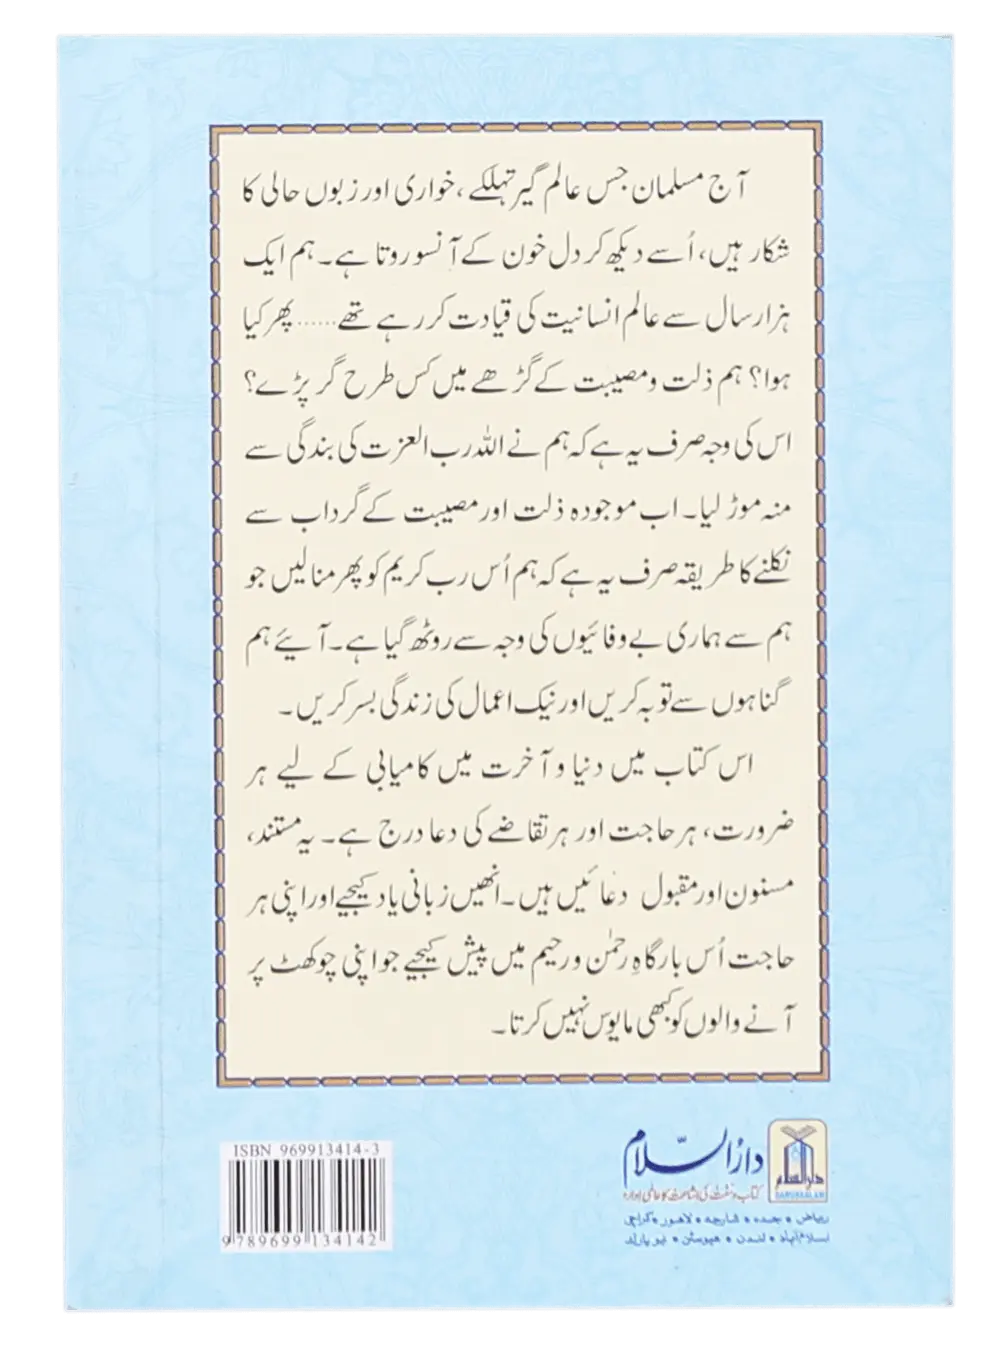 آج مسلمان جس عالم گیر تہلکے، خواری اور زبوں حالی کا
شکار ہیں، اُسے دیکھ کر دل خون کے آنسو روتا ہے۔ ہم ایک
ہزار سال سے عالم انسانیت کی قیادت کر رہے تھے...... پھر کیا
ہوا؟ ہم ذلت و مصیبت کے گڑھے میں کس طرح گر پڑے؟
اس کی وجہ صرف یہ ہے کہ ہم نے اللہ رب العزت کی بندگی سے
منہ موڑ لیا۔ اب موجودہ ذلت اور مصیبت کے گرداب سے
نکلنے کا طریقہ صرف یہ ہے کہ ہم اُس رب کریم کو پھر منا لیں جو
ہم سے ہماری بے وفائیوں کی وجہ سے روٹھ گیا ہے۔ آئیے ہم
گناہوں سے توبہ کریں اور نیک اعمال کی زندگی بسر کریں۔
اس کتاب میں دنیا و آخرت میں کامیابی کے لیے ہر
ضرورت، ہر حاجت اور ہر تقاضے کی دعا درج ہے۔ یہ مستند،
مسنون اور مقبول دعائیں ہیں۔ انھیں زبانی یاد کیجیے اور اپنی ہر
حاجت اُس بارگاہِ رحمٰن و رحیم میں پیش کیجیے جو اپنی چوکھٹ پر
آنے والوں کو کبھی مایوس نہیں کرتا۔
ISBN 969913414-3
9 789699 134142
دارُالسّلام
کتاب و سنت کی اشاعت کا عالمی ادارہ
ریاض • جدہ • شارجہ • لاہور • کراچی
اسلام آباد • لندن • ہیوسٹن • نیو یارک
دارالسلام
DARUSSALAM